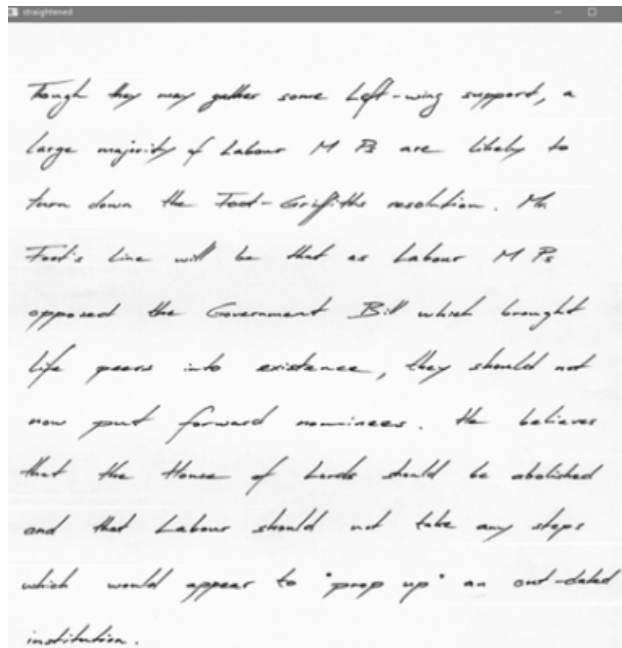 straightened
Though they may gather some Left-wing support, a
large majority of Labour M Ps are likely to
turn down the Foot-Griffiths resolution. Mr.
Foot's line will be that as Labour M Ps
opposed the Government Bill which brought
life peers into existence, they should not
now put forward nominees. He believes
that the House of Lords should be abolished
and that Labour should not take any steps
which would appear to "prop up" an out-dated
institution.